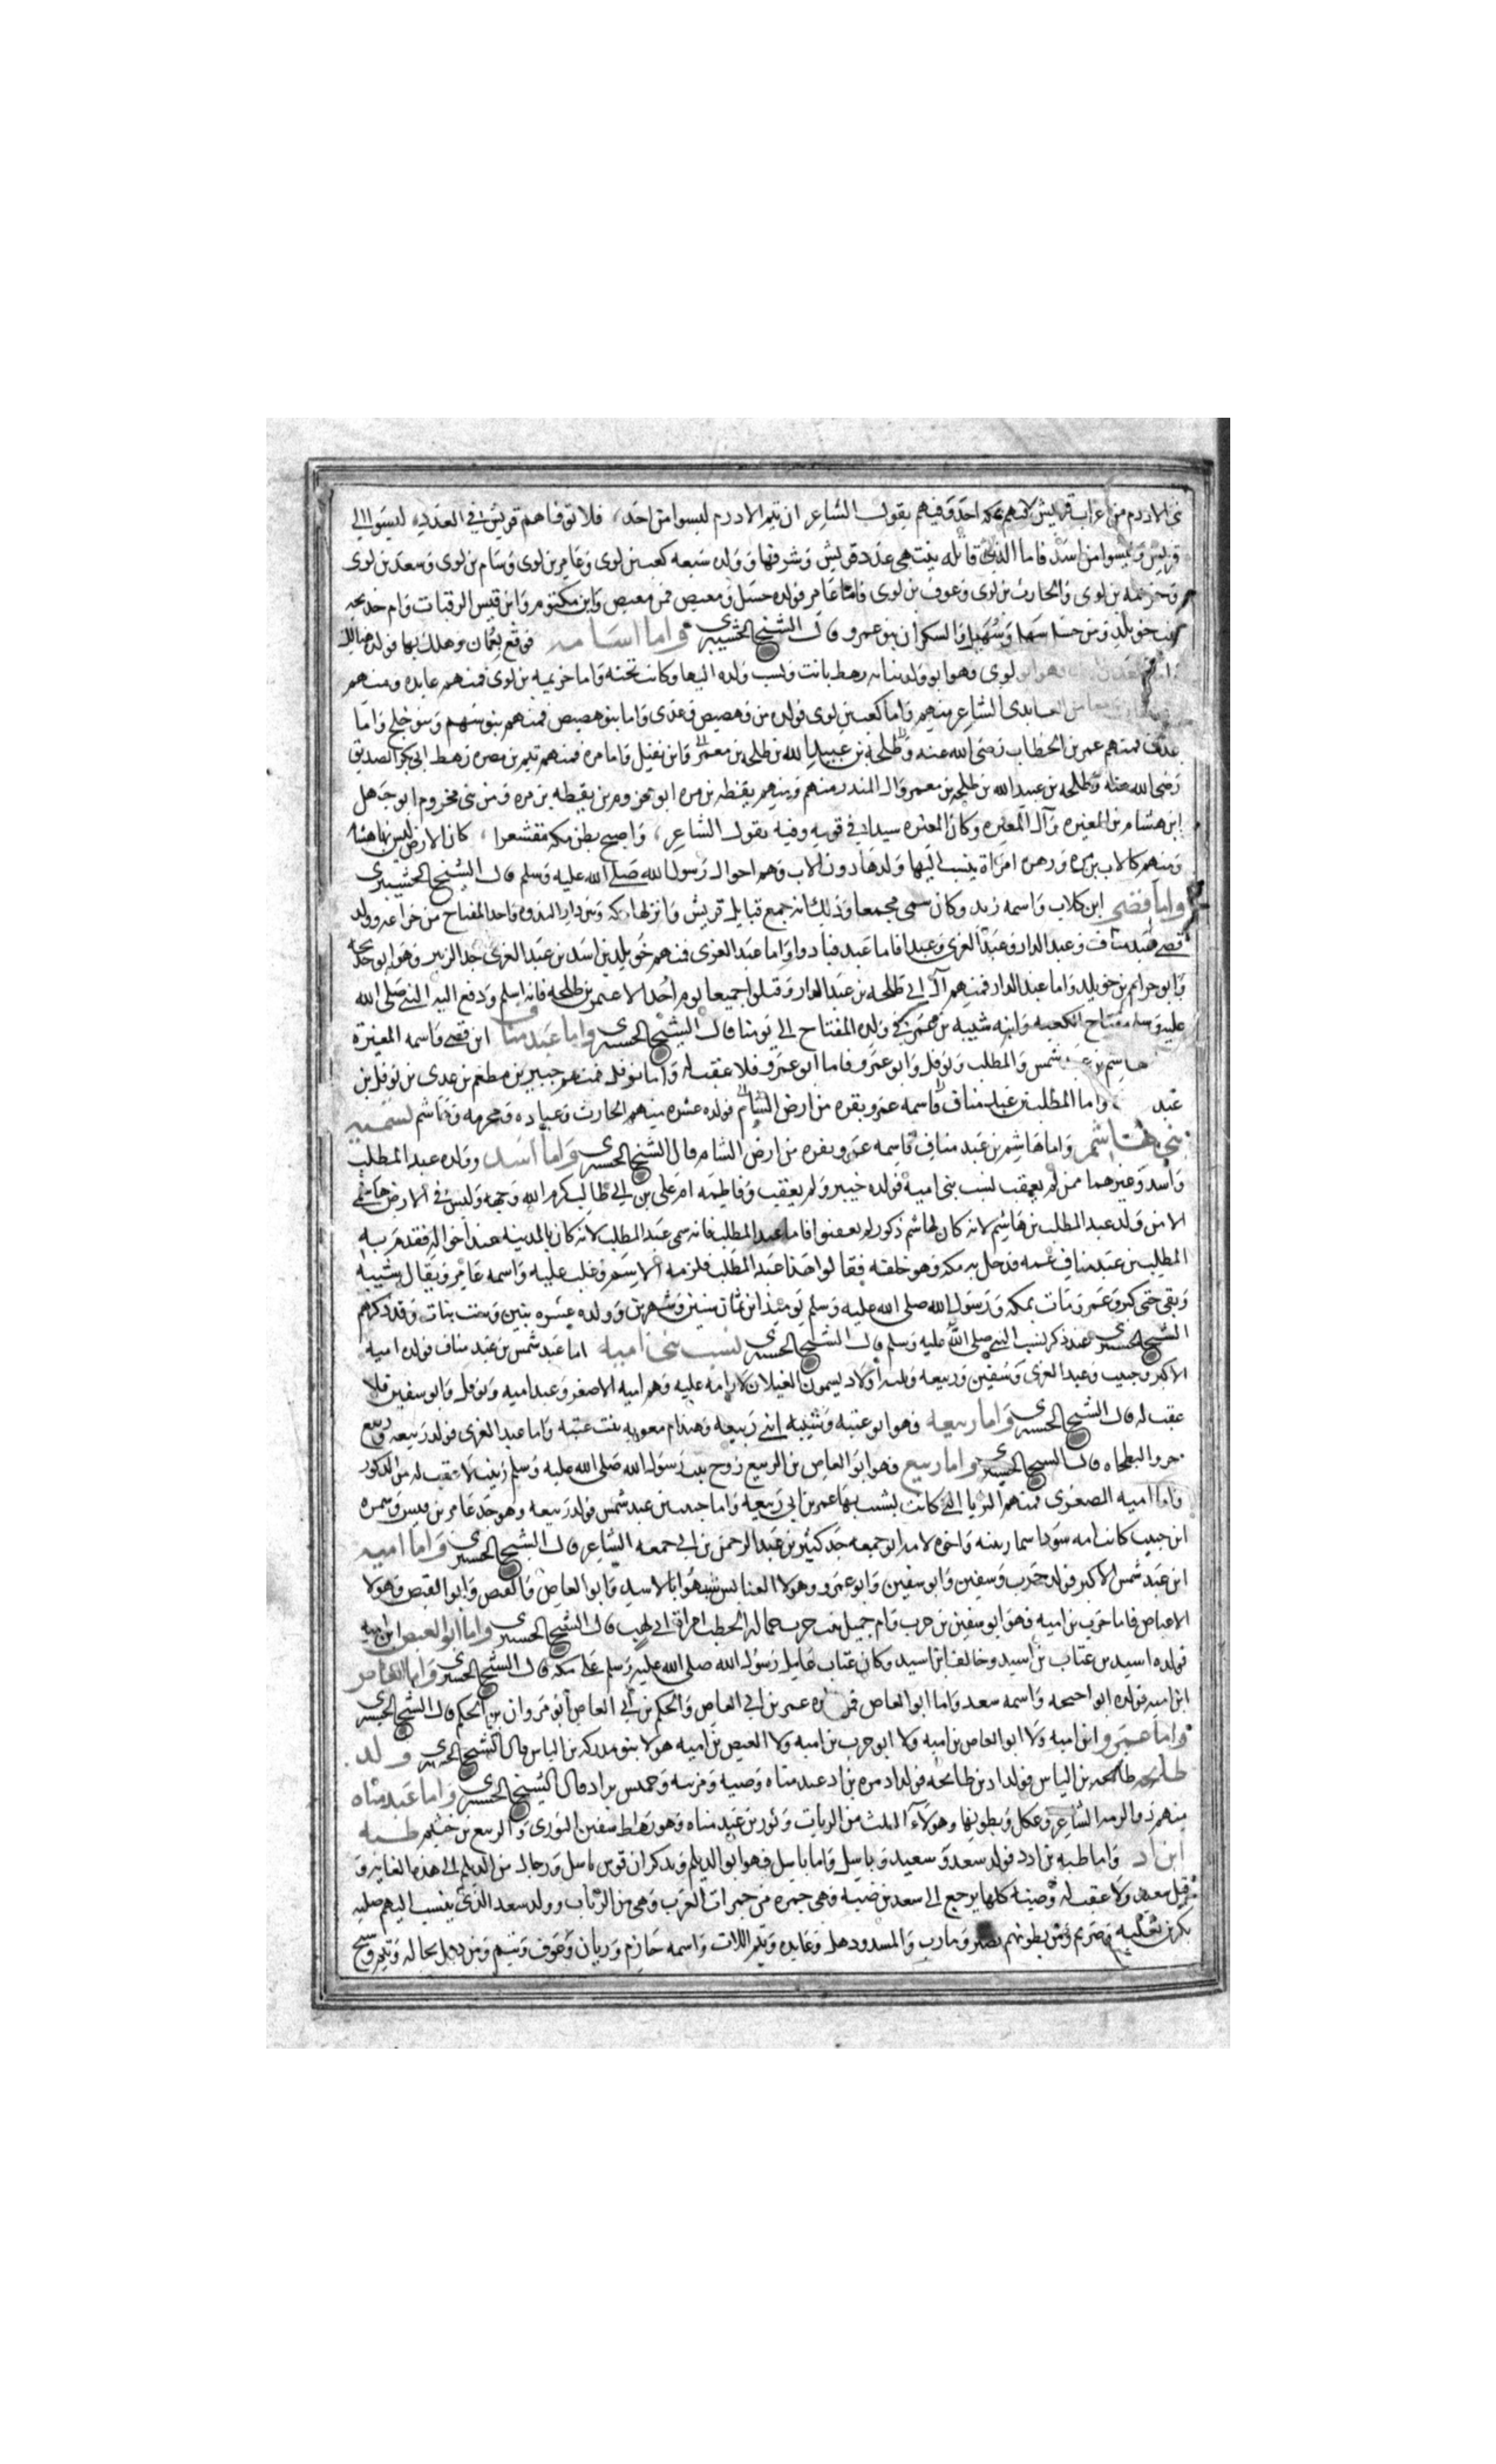 بنى الادرم من اعراب قريش لانهم بمكه احد وفيهم يقول الشاعر ان تيم الادرم ليسوا من احد، فلا توفاهم قريش في العدديه ليسوا الي
قريش وليسوا من اسد فاما الذي قابله بنت هي عدد قريش وشرفها وولده سبعه كعب بن لوى وعامر بن لوى وسام بن لوى وسعد بن لوى
وخزيمه بن لوى والحارث بن لوى وعوف بن لوى فاما عامر فولده حسل ومعيص فمن معيص وابن مكتوم وابن قيس الرقيات وام خديجه
بنت خويلد ومن حسل سهل وسهيل والسكران بنو عمرو قال الشيخ الحشيبرى واما اسامه فوقع بعمان وهلك بها فولده هنالك
لوى وهو ابو ولد بنانه رهط بانت ونسب ولده اليها وكانت تحته واما خزيمه بن لوى فمنهم عايده ومنهم
العايدى الشاعر منهم واما كعب بن لوى فولده مره وهصيص وعدى واما بنو هصيص فمنهم بنو سهم وبنو جمح واما
عدى فمنهم عمر بن الخطاب رضى الله عنه وطلحه بن عبيد الله بن طلحه بن معمر وابن نفيل واما مره فمنهم تيم بن مره رهط ابى بكر الصديق
رضى الله عنه وطلحه بن عبيد الله بن طلحه بن معمر وال المندر منهم ومنهم يقظه بن مره ابو مخزوم بن يقظه بن مره ومن بنى مخزوم ابو جهل
ابن هشام بن المغيره وآل المغيره وكان المغيره سيدا في قومه وفيه يقول الشاعر، واصبح بطن مكه مقشعرا، كان الارض ليس بها هشام
ومنهم كلاب بن مره ورهن امراة ينسب اليها ولدها دون الاب وهم اخوال رسول الله صلى الله عليه وسلم قال الشيخ الحشيبرى
واما قصى ابن كلاب واسمه زيد وكان سمى مجمعا وذلك انه جمع قبايل قريش وانزلها مكه وبنى دار الندوه واخد المفتاح من خزاعه وولد
قصى عبد مناف وعبد الدار وعبد العزى وعبدا فاما عبد فبادوا واما عبد العزى فمنهم خويلد بن اسد بن عبد العزى جد الزبير وهو ابو خديجه
وابو حزام بن خويلد واما عبد الدار فمنهم آل ابى طلحه بن عبد الدار وقتلوا جميعا يوم احد الا عثمن بن طلحه فانه اسلم ودفع اليه النبي صلى الله
عليه وسلم مفتاح الكعبه وابنه شيبه بن عثمن في ولده المفتاح الى يومنا قال الشيخ الحسيبرى واما عبد مناف ابن قصى واسمه المغيرة
هاشم بن عبد شمس والمطلب ونوفل وابو عمرو فاما ابو عمرو فلا عقب له واما نوفل فمنهم جبير بن مطعم بن عدى بن نوفل بن
عبد واما المطلب بن عبد مناف فاسمه عمرو بقره من ارض الشام فولده عشره منهم الحارث وعباده ومخرمه وهاشم لسميه
بنى هاشم واما هاشم بن عبد مناف فاسمه عمرو بقره من ارض الشام قال الشيخ الحسيبرى واما اسد وولده عبد المطلب
واسد وغيرهما ممن لم يعقب نسب بنى اميه فولده خيبر ولم يعقب وفاطمه ام على بن ابى طالب كرم الله وجهه وليس في الارض هاشمى
الا من ولد عبد المطلب بن هاشم لانه كان لهاشم ذكور لم يعقبوا فاما عبد المطلب فانه سمى عبد المطلب لانه كان بالمدينه عند اخواله فقدم به
المطلب بن عبد مناف عمه فدخل به مكه وهو خلفه فقالوا هذا عبد المطلب فلزمه الاسم وغلب عليه واسمه عامر ويقال شيبه
وبقى حتى كبر وعمر ومات بمكه ورسول الله صلى الله عليه وسلم يوميذ ابن ثمان سنين وشهرين وولده عشره بنين وست بنات وقد ذكرهم
الشيخ الحسيبرى عند ذكر نسب النبي صلى الله عليه وسلم قال الشيخ الحسيبرى نسب بنى اميه اما عبد شمس بن عبد مناف فولده اميه
الاكبر وحبيب وعبد العزى وسفين وربيعه وثلثه اولاد يسمون الغيلان لا رامه عليه وهم اميه الاصغر وعبد اميه ونوفل وابو سفين فلا
عقب له قال الشيخ الحسيبرى واما ربيعه فهو ابو عتبه وشيبه ابنى ربيعه وهند ام معويه بنت عتبه واما عبد العزى فولد ربيعه وربيع
جرو البطحاء قال الشيخ الحسيبرى واما ربيع فهو ابو العاص بن الربيع زوج بنت رسول الله صلى الله عليه وسلم زينب لا عقب له من الدكور
واما اميه الصغرى فمنهم الثريا التي كانت يشبب بها عمر بن ابى ربيعه واما حبيب بن عبد شمس فولد ربيعه وهو جد عامر بن قيس وسمره
ابن حبيب كانت امه سودا اسمها ربنه واخوه لامه ابو جمعه جد كثير بن عبد الرحمن بن ابى جمعه الشاعر قال الشيخ الحسيبرى واما اميه
ابن عبد شمس الاكبر فولد حرب وسفين وابو سفين وابو عمرو وهولا العنابس شبهوا بالاسد وابو العاص والعاص والعيص وابو العيص وهولا
الاعياص فاما حرب بن اميه فهو ابو سفين بن حرب وام جميل بنت حرب حماله الحطب امراة ابى لهب قال الشيخ الحسيبرى واما ابو العيص ابن اميه
فولده اسيد بن عتاب بن اسيد وخالد بن اسيد وكان عتاب عامل رسول الله صلى الله عليه وسلم على مكه قال الشيخ الحسيبرى واما العاص
ابن اميه فولده ابو احيحه واسمه سعد واما ابو العاص فولده عمر بن ابى العاص والحكم بن ابى العاص ابو مروان بن الحكم قال الشيخ الحسيبرى
واما عمرو ابن اميه ولا ابو العاص بن اميه ولا ابو حرب بن اميه ولا العيص بن اميه هولا بنو مدركه بن الياس قال الشيخ الحسيبرى وولد
طابخه طابخه بن الياس فولد اد بن طابخه فولد اد مره بن اد عبد مناه وضبه ومزينه وحميس بن اد قال الشيخ الحسيبرى واما عبد مناه
منهم ذو الرمه الشاعر وعكل وبطونها وهولاء الثلث من الربات وثور بن عبد مناه وهو رهط سفين الثورى والربيع بن خثيم طبه
ابن اد واما طبه بن ادد فولد سعد وسعيد وباسل واما باسل فهو ابو الديلم ويدكر ان قوس باسل ورجال من الديلم الى هذه الغايه و
قيل سعيد ولا عقب له وضبه كلها يرجع الى سعد بن ضبه فهي جمره من جمرات العرب وهي من الرباب وولد سعد الذى ينسب اليهم صلبه
بكر بن ثعلبه وصريم ومن بطونهم نصر ومارب والمسدود هل وعايده وتيم اللات واسمه حازم وريان وعوف وشيم ومن دهل بجاله وتيم وسبح